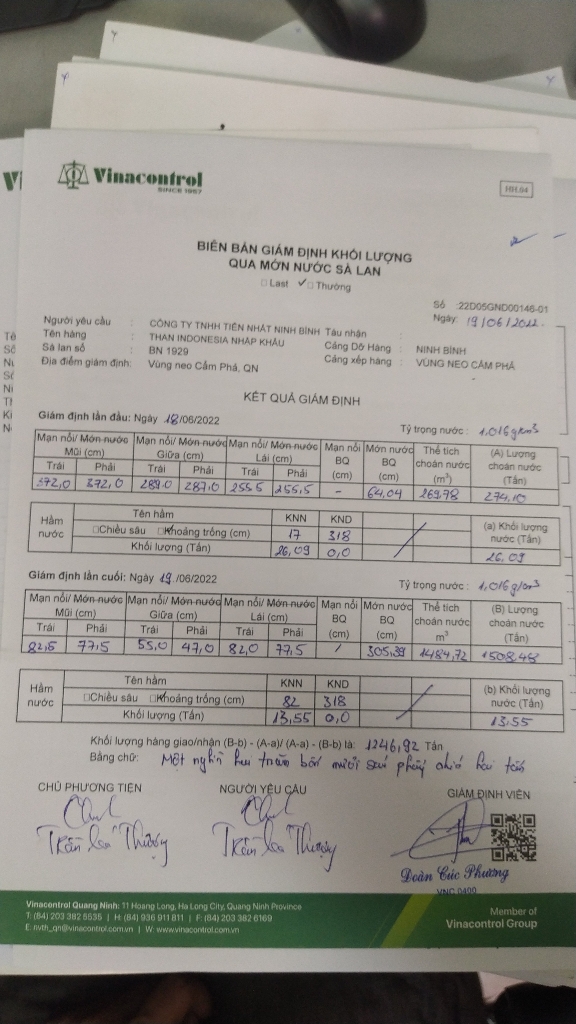 Vinacontrol
SINCE 1957
BIÊN BẢN GIÁM ĐỊNH KHỐI LƯỢNG
QUA MỚN NƯỚC SÀ LAN
□ Last ✓□ Thường
Số :22D05GND00146-01
Ngày: 19/06/2022.
Người yêu cầu : CÔNG TY TNHH TIẾN NHẤT NINH BÌNH Tàu nhận :
Tên hàng : THAN INDONESIA NHẬP KHẨU Cảng Dỡ Hàng : NINH BÌNH
Sà lan số : BN 1929 Cảng xếp hàng : VÙNG NEO CẨM PHẢ
Địa điểm giám định: Vùng neo Cẩm Phả, QN
KẾT QUẢ GIÁM ĐỊNH
Giám định lần đầu: Ngày 18/06/2022 Tỷ trọng nước : 1,016g/cm³
Mạn nổi/ Mớn nước Mũi (cm) Mạn nổi/ Mớn nước Giữa (cm) Mạn nổi/ Mớn nước Lái (cm) Mạn nổi BQ (cm) Mớn nước BQ (cm) Thể tích choán nước (m³) (A) Lượng choán nước (Tấn)
Trái Phải Trái Phải Trái Phải
372,0 372,0 289,0 287,0 255,5 255,5 - 64,04 269,78 274,10
Hầm nước Tên hầm KNN KND (a) Khối lượng nước (Tấn)
□Chiều sâu □Khoảng trống (cm) 17 318
Khối lượng (Tấn) 26,09 0,0 26,09
Giám định lần cuối: Ngày 19/06/2022 Tỷ trọng nước : 1,016g/cm³
Mạn nổi/ Mớn nước Mũi (cm) Mạn nổi/ Mớn nước Giữa (cm) Mạn nổi/ Mớn nước Lái (cm) Mạn nổi BQ (cm) Mớn nước BQ (cm) Thể tích choán nước m³ (B) Lượng choán nước (Tấn)
Trái Phải Trái Phải Trái Phải
82,5 77,5 55,0 47,0 82,0 77,5 / 305,39 1484,72 1508,48
Hầm nước Tên hầm KNN KND (b) Khối lượng nước (Tấn)
□Chiều sâu □Khoảng trống (cm) 82 318
Khối lượng (Tấn) 13,55 0,0 13,55
Khối lượng hàng giao/nhận (B-b) - (A-a)/ (A-a) - (B-b) là: 1246,92 Tấn
Bằng chữ: Một nghìn hai trăm bốn mươi sáu phẩy chín hai tấn
CHỦ PHƯƠNG TIỆN NGƯỜI YÊU CẦU GIÁM ĐỊNH VIÊN
Đoàn Cúc Phương
VNC 0400
Vinacontrol Quang Ninh: 11 Hoang Long, Ha Long City, Quang Ninh Province
T: (84) 203 382 5535 | H: (84) 936 911 811 | F: (84) 203 382 6169
E: nvth_qn@vinacontrol.com.vn | W: www.vinacontrol.com.vn
Member of
Vinacontrol Group